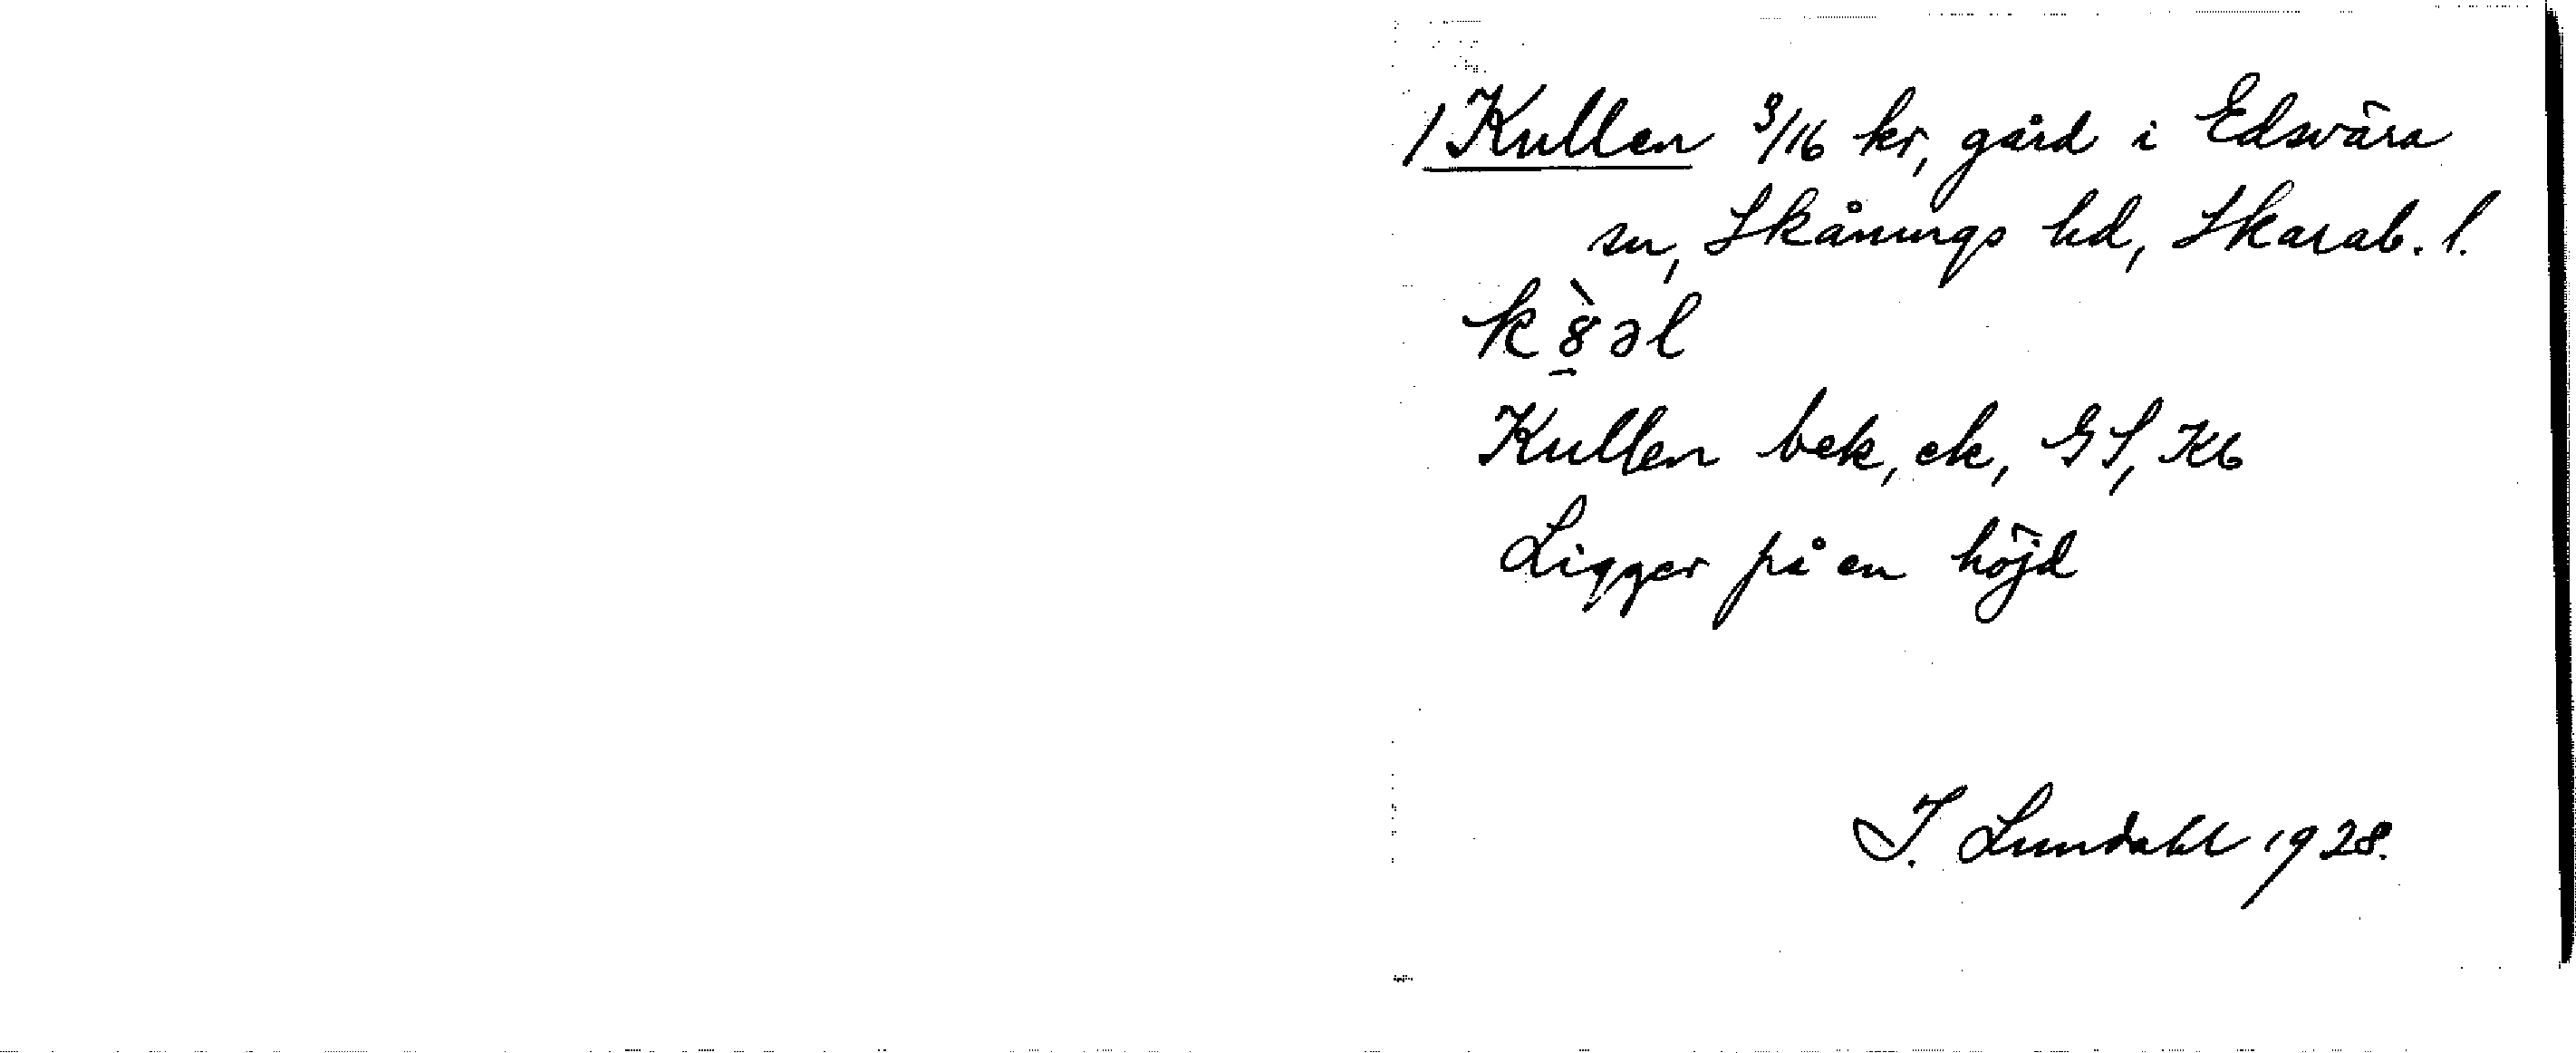 / Kullen 3/16 kr, gård i Edsvära
sn, Skånings hd, Skarab. l.
k8̤̀əl
Kullen bek, ek, GS, Kb
Ligger på en höjd
I. Lundahl 1928.